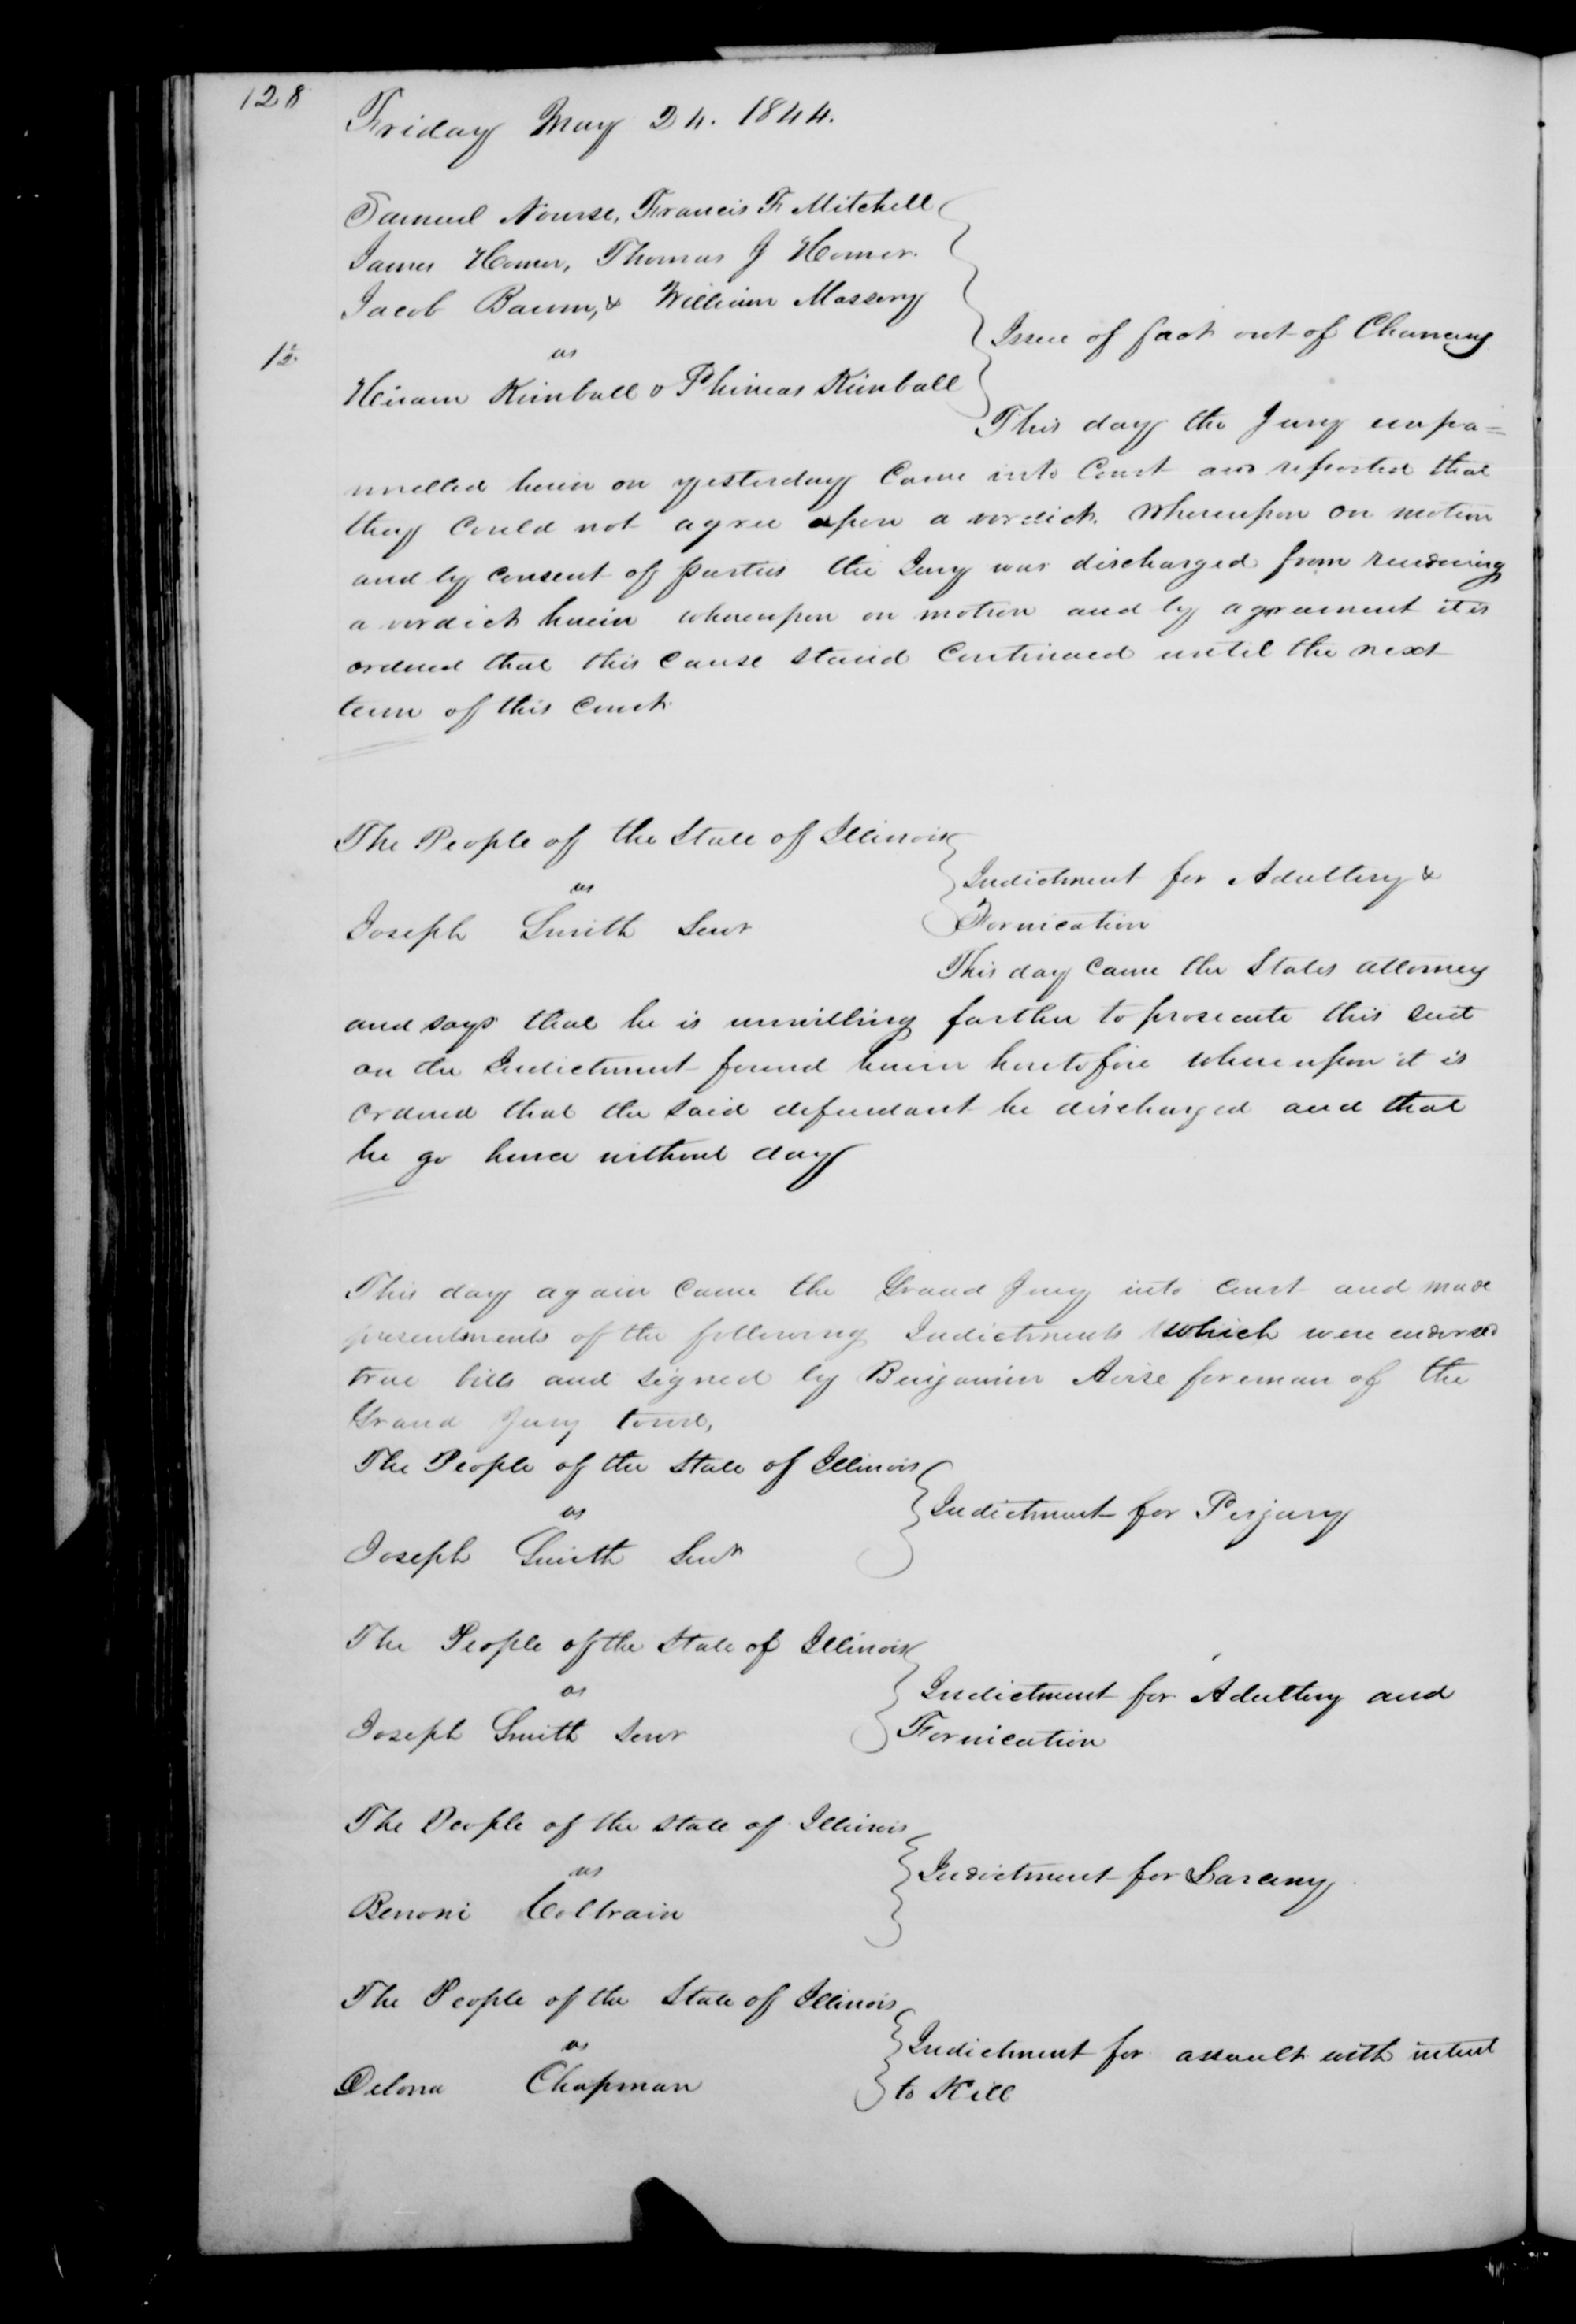 128
Friday May 24. 1844.
Samuel Nourse, Francis F Mitchell
James Homer, Thomas J Homer.
Jacob Baum, & William Massery
vs
Hiram Kimball & Phineas Kimball
Issue of fact out of Chancery
This day the Jury empa=
nnelled herein on yesterday Came into Court and reported that
they Could not agree upon a verdict. Whereupon on motion
and by consent of parties the Jury was discharged from rendering
a verdict herein whereupon on motion and by agreement it is
ordered that this Cause stand Continued until the next
term of this Court
The People of the State of Illinois
vs
Joseph Smith Senr
Indictment for Adultery &
Fornication
This day Came the States attorney
and says that he is unwilling further to prosecute this suit
on the Indictment found herein heretofore whereupon it is
ordered that the said defendant be discharged and that
he go hence without day
This day again Came the Grand Jury into Court and made
presentments of the following Indictments which were endorsed
true bills and signed by Benjamin Avise foreman of the
Grand Jury towit,
The People of the State of Illinois
vs
Joseph Smith Senr
Indictment for Perjury
The People of the State of Illinois
vs
Joseph Smith Senr
Indictment for Adultery and
Fornication
The People of the State of Illinois
vs
Benoni Coltrain
Indictment for Larceny
The People of the State of Illinois
vs
Delona Chapman
Indictment for assault with intent
to Kill